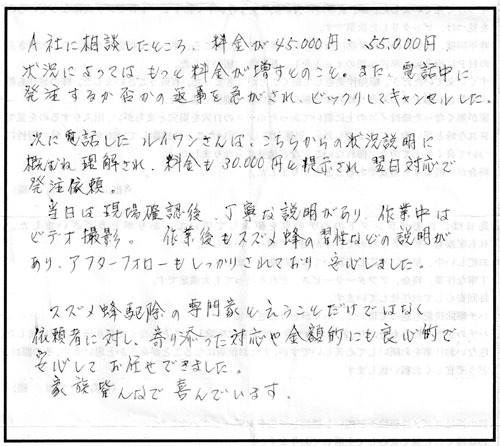 A社に相談したところ、料金が45.000円・55.000円
状況によっては、もっと料金が増すとのこと。また、電話中に
発注するか否かの返事を急がされ、ビックリしてキャンセルした。
次に電話したルイワンさんは、こちらからの状況説明に
概ね理解され、料金も30.000円と提示され、翌日対応で
発注依頼。
当日は現場確認後、丁寧な説明があり、作業中は
ビデオ撮影。 作業後もスズメ蜂の習性などの説明が
あり、アフターフォローもしっかりされており、安心しました。
スズメ蜂駆除の専門家と云うことだけではなく
依頼者に対し、寄り添った対応や金額的にも良心的で
安心してお任せできました。
家族皆んなで喜んでいます。